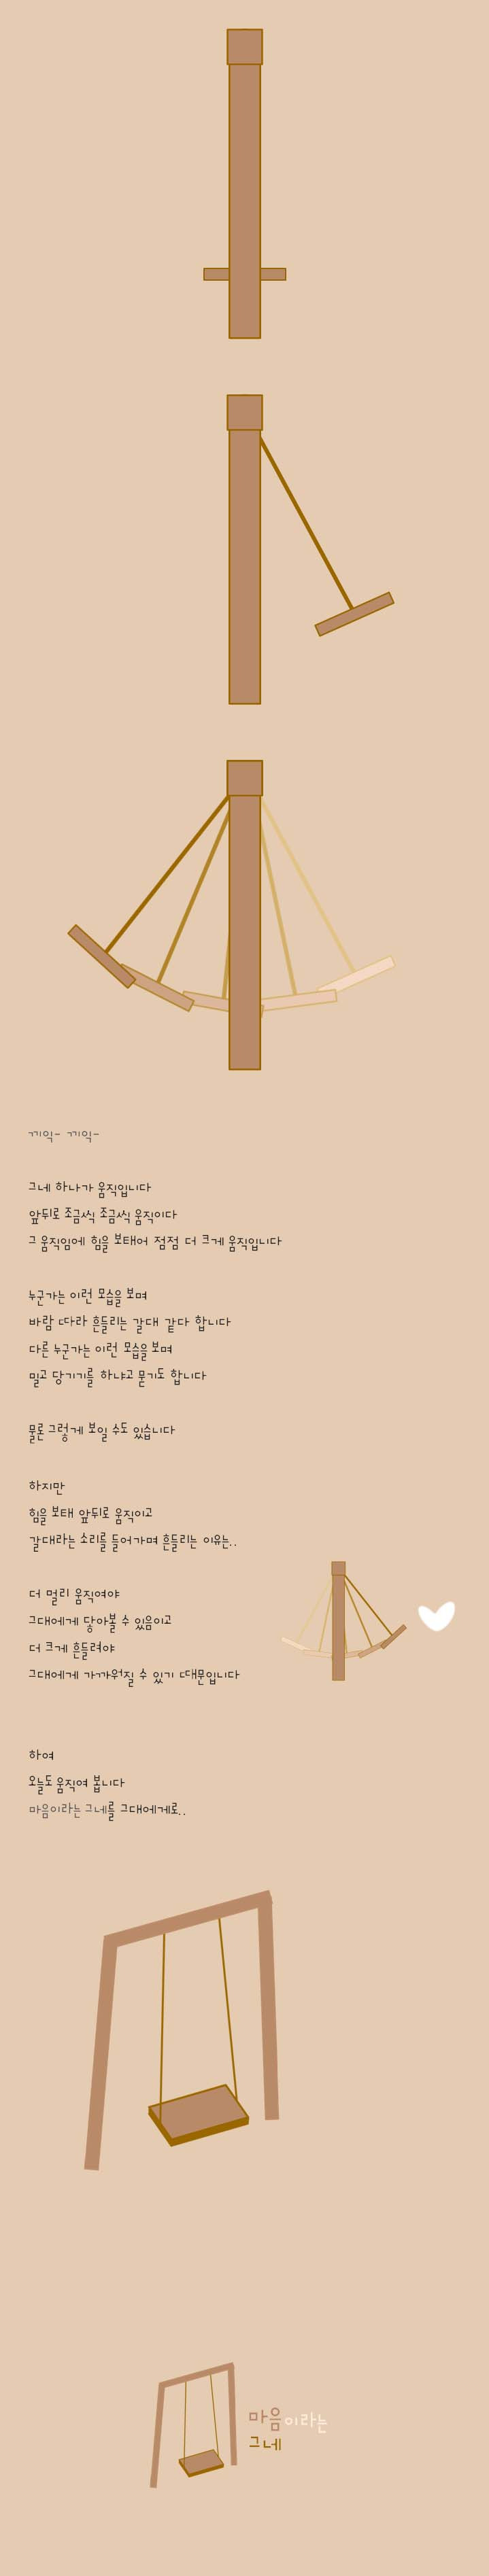 끼익- 끼익-
그네 하나가 움직입니다
앞뒤로 조금씩 조금씩 움직이다
그 움직임에 힘을 보태어 점점 더 크게 움직입니다
누군가는 이런 모습을 보며
바람 따라 흔들리는 갈대 같다 합니다
다른 누군가는 이런 모습을 보며
밀고 당기기를 하냐고 묻기도 합니다
물론 그렇게 보일 수도 있습니다
하지만
힘을 보태 앞뒤로 움직이고
갈대라는 소리를 들어가며 흔들리는 이유는..
더 멀리 움직여야
그대에게 닿아볼 수 있음이고
더 크게 흔들려야
그대에게 가까워질 수 있기 때문입니다
하여
오늘도 움직여 봅니다
마음이라는 그네를 그대에게로..
마음이라는
그네